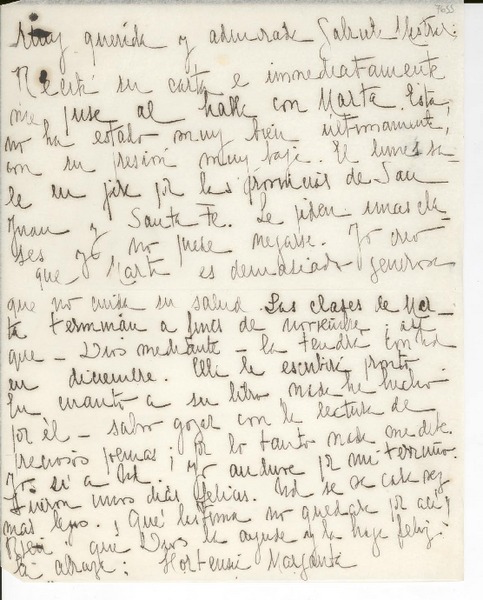 7655
Muy querida y admirada Gabriela Mistral:
Recibí su carta e inmediatamente
me puse al habla con Marta. Esta,
no ha estado muy bien últimamente,
con su presión muy baja. El lunes sa-
le en jira por las provincias de San
Juan y Santa Fe. Le piden unas cla-
ses y no puede negarse. Yo creo
que Marta es demasiado generosa
que no cuida su salud. Las clases de Mar-
ta terminan a fines de noviembre, así
que - Dios mediante - la tendrá con Ud
en diciembre. Ella le escribirá pronto.
En cuanto a su libro nada he hecho
por él - salvo gozar con la lectura de
preciosos poemas; por lo tanto nada me debe.
Yo sí a Ud. Yo anduve por mi terruño.
Fueron unos días felices. Ud se va cada vez
más lejos. ¡Qué lástima no quedarse por acá!
Bien que Dios la ayude y la haga feliz.
La abraza: Hortensia Margarita